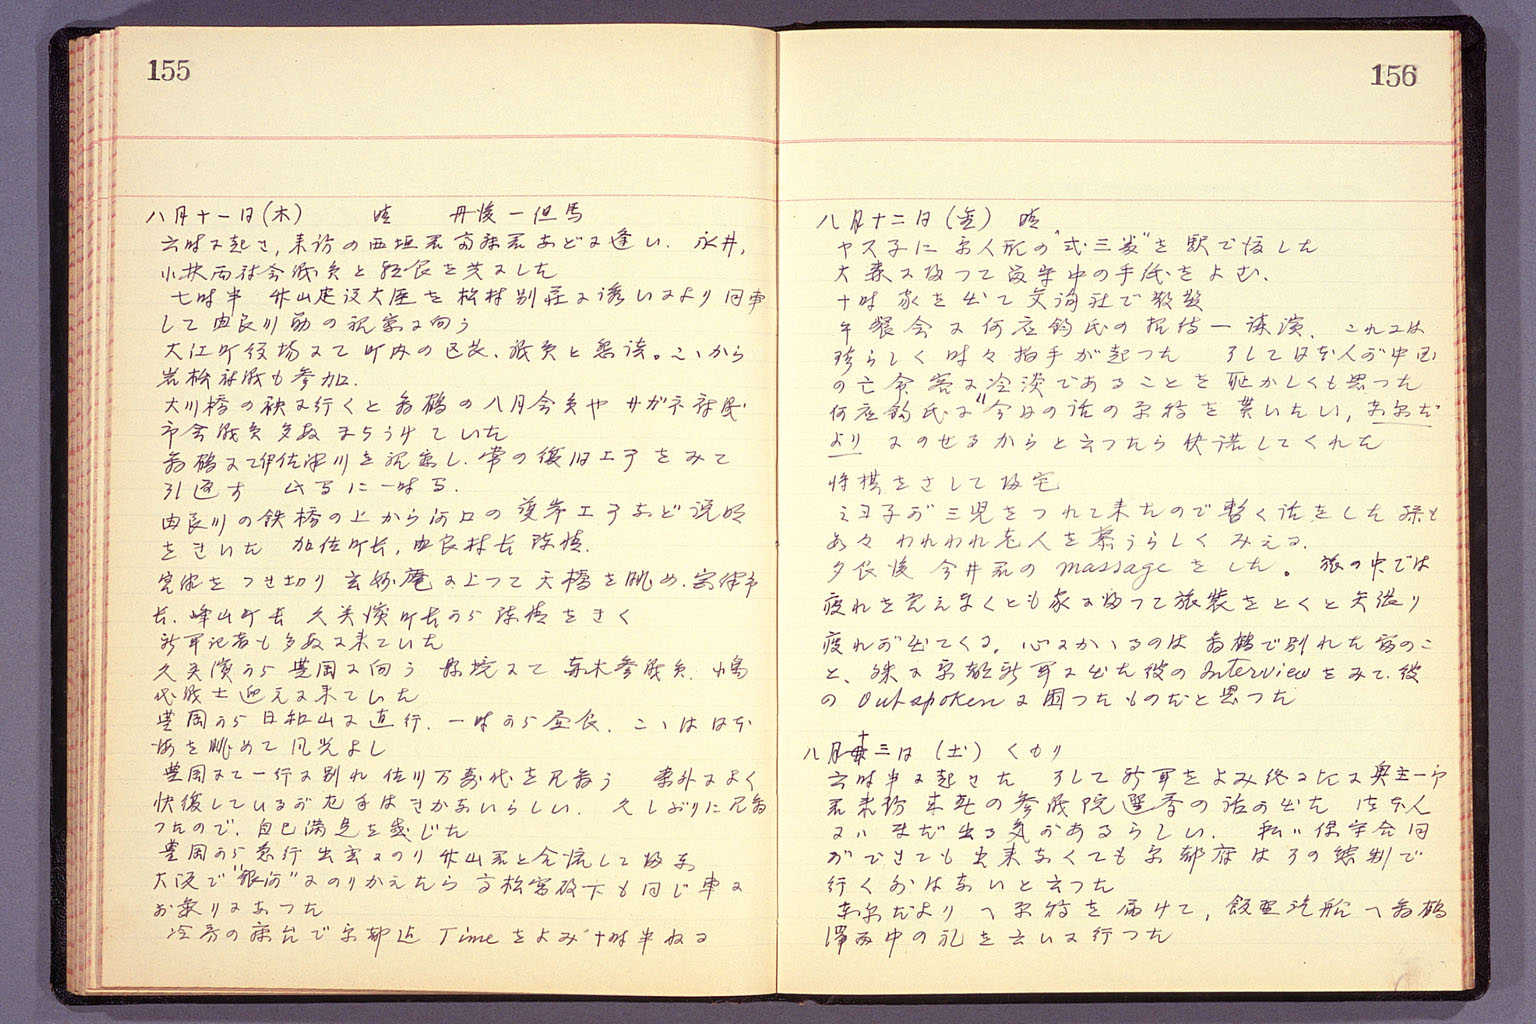 155
八月十一日(木) 晴 丹後―但馬
六時ニ起き、来訪の西垣君斎藤君などニ逢い、永井、
小林両社会議員と朝食を共ニした
七時半 竹山建設大臣を松村別荘ニ誘いニより同車
して由良川筋の視察ニ向う
大江町役場ニて町内の区長、議員と懇談。こゝから
岩松社議も参加.
大川橋の袂ニ行くと舞鶴の八月会員や
市会議員多数まちうけていた
舞鶴ニて伊佐津川を視察し、常の復旧工事をみて
引返す 此写に一時写.
由良川の鉄橋の上から河口の護岸工事など説明
をきいた 加佐町長,由良村長陳情.
宮津をつき切り玄妙庵ニ上って天橋を眺め.宮津市
長.峰山町長 久美濱町長から陳情をきく
新聞記者も多数ニ来ていた
久美濱から豊岡ニ向う 県境ニて 参議員.小島
代議士迎えニ来ていた
豊岡から日和山ニ直行.一時から昼食.こゝは日本
海を眺めて風光よし
豊岡ニて一行ニ別れ 佐川万寿代を見舞う 案外ニよく
快復しているが左手はきかないらしい. 久しぶりに見舞
つたので.自己満足を感じた
豊岡から急行出雲ニのり竹山君と合流して帰京
大阪で"銀河"ニのりかえたら高松宮殿下も同じ車ニ
お乗りニなった
冷房の寝台で京都迄Timeをよみ十時半ねる
156
八月十二日(金) 晴
ヤス子に京人形の"式三番"を駅で渡した
大森ニ帰つて留守中の手紙をよむ.
十時家を出て交詢社で散髪
午餐会ニ何応欽氏の招待―講演. これニは
珍らしく時々拍手が起つた そして日本人が中国
の亡命客ニ冷淡であることを恥かしくも思つた
何応欽氏ニ"今日の話の原稿を貰いたい,あまだ
よりニのせるからと云つたら快諾してくれた
将棋をさして帰宅
ミヨ子が三児をつれて来たので暫く話をした 孫も
段々われわれ老人を慕うらしくみえる.
夕食後 今井君のmassageをした。旅の中では
疲れを覚えなくとも家ニ帰つて旅装をとくと矢張り
疲れが出てくる.心ニかゝるのは舞鶴で別れた のこ
と、殊ニ京都新聞ニ出た彼のInterviewをみて.彼
のoutspokenニ困つたものだと思つた
八月十三日 (土) くもり
六時半ニ起きた そして新聞をよみ終るころニ奥主一郎
君来訪 来春の参議院選挙の話が出た 佐々木人
ニハまだ出る気があるらしい. 私ハ保守合同
ができても出来なくても京都府は今の態制で
行く外はないと云つた
あまだよりへ原稿を届けて,飯野汽船へ舞鶴
滞在中の礼を云いニ行つた